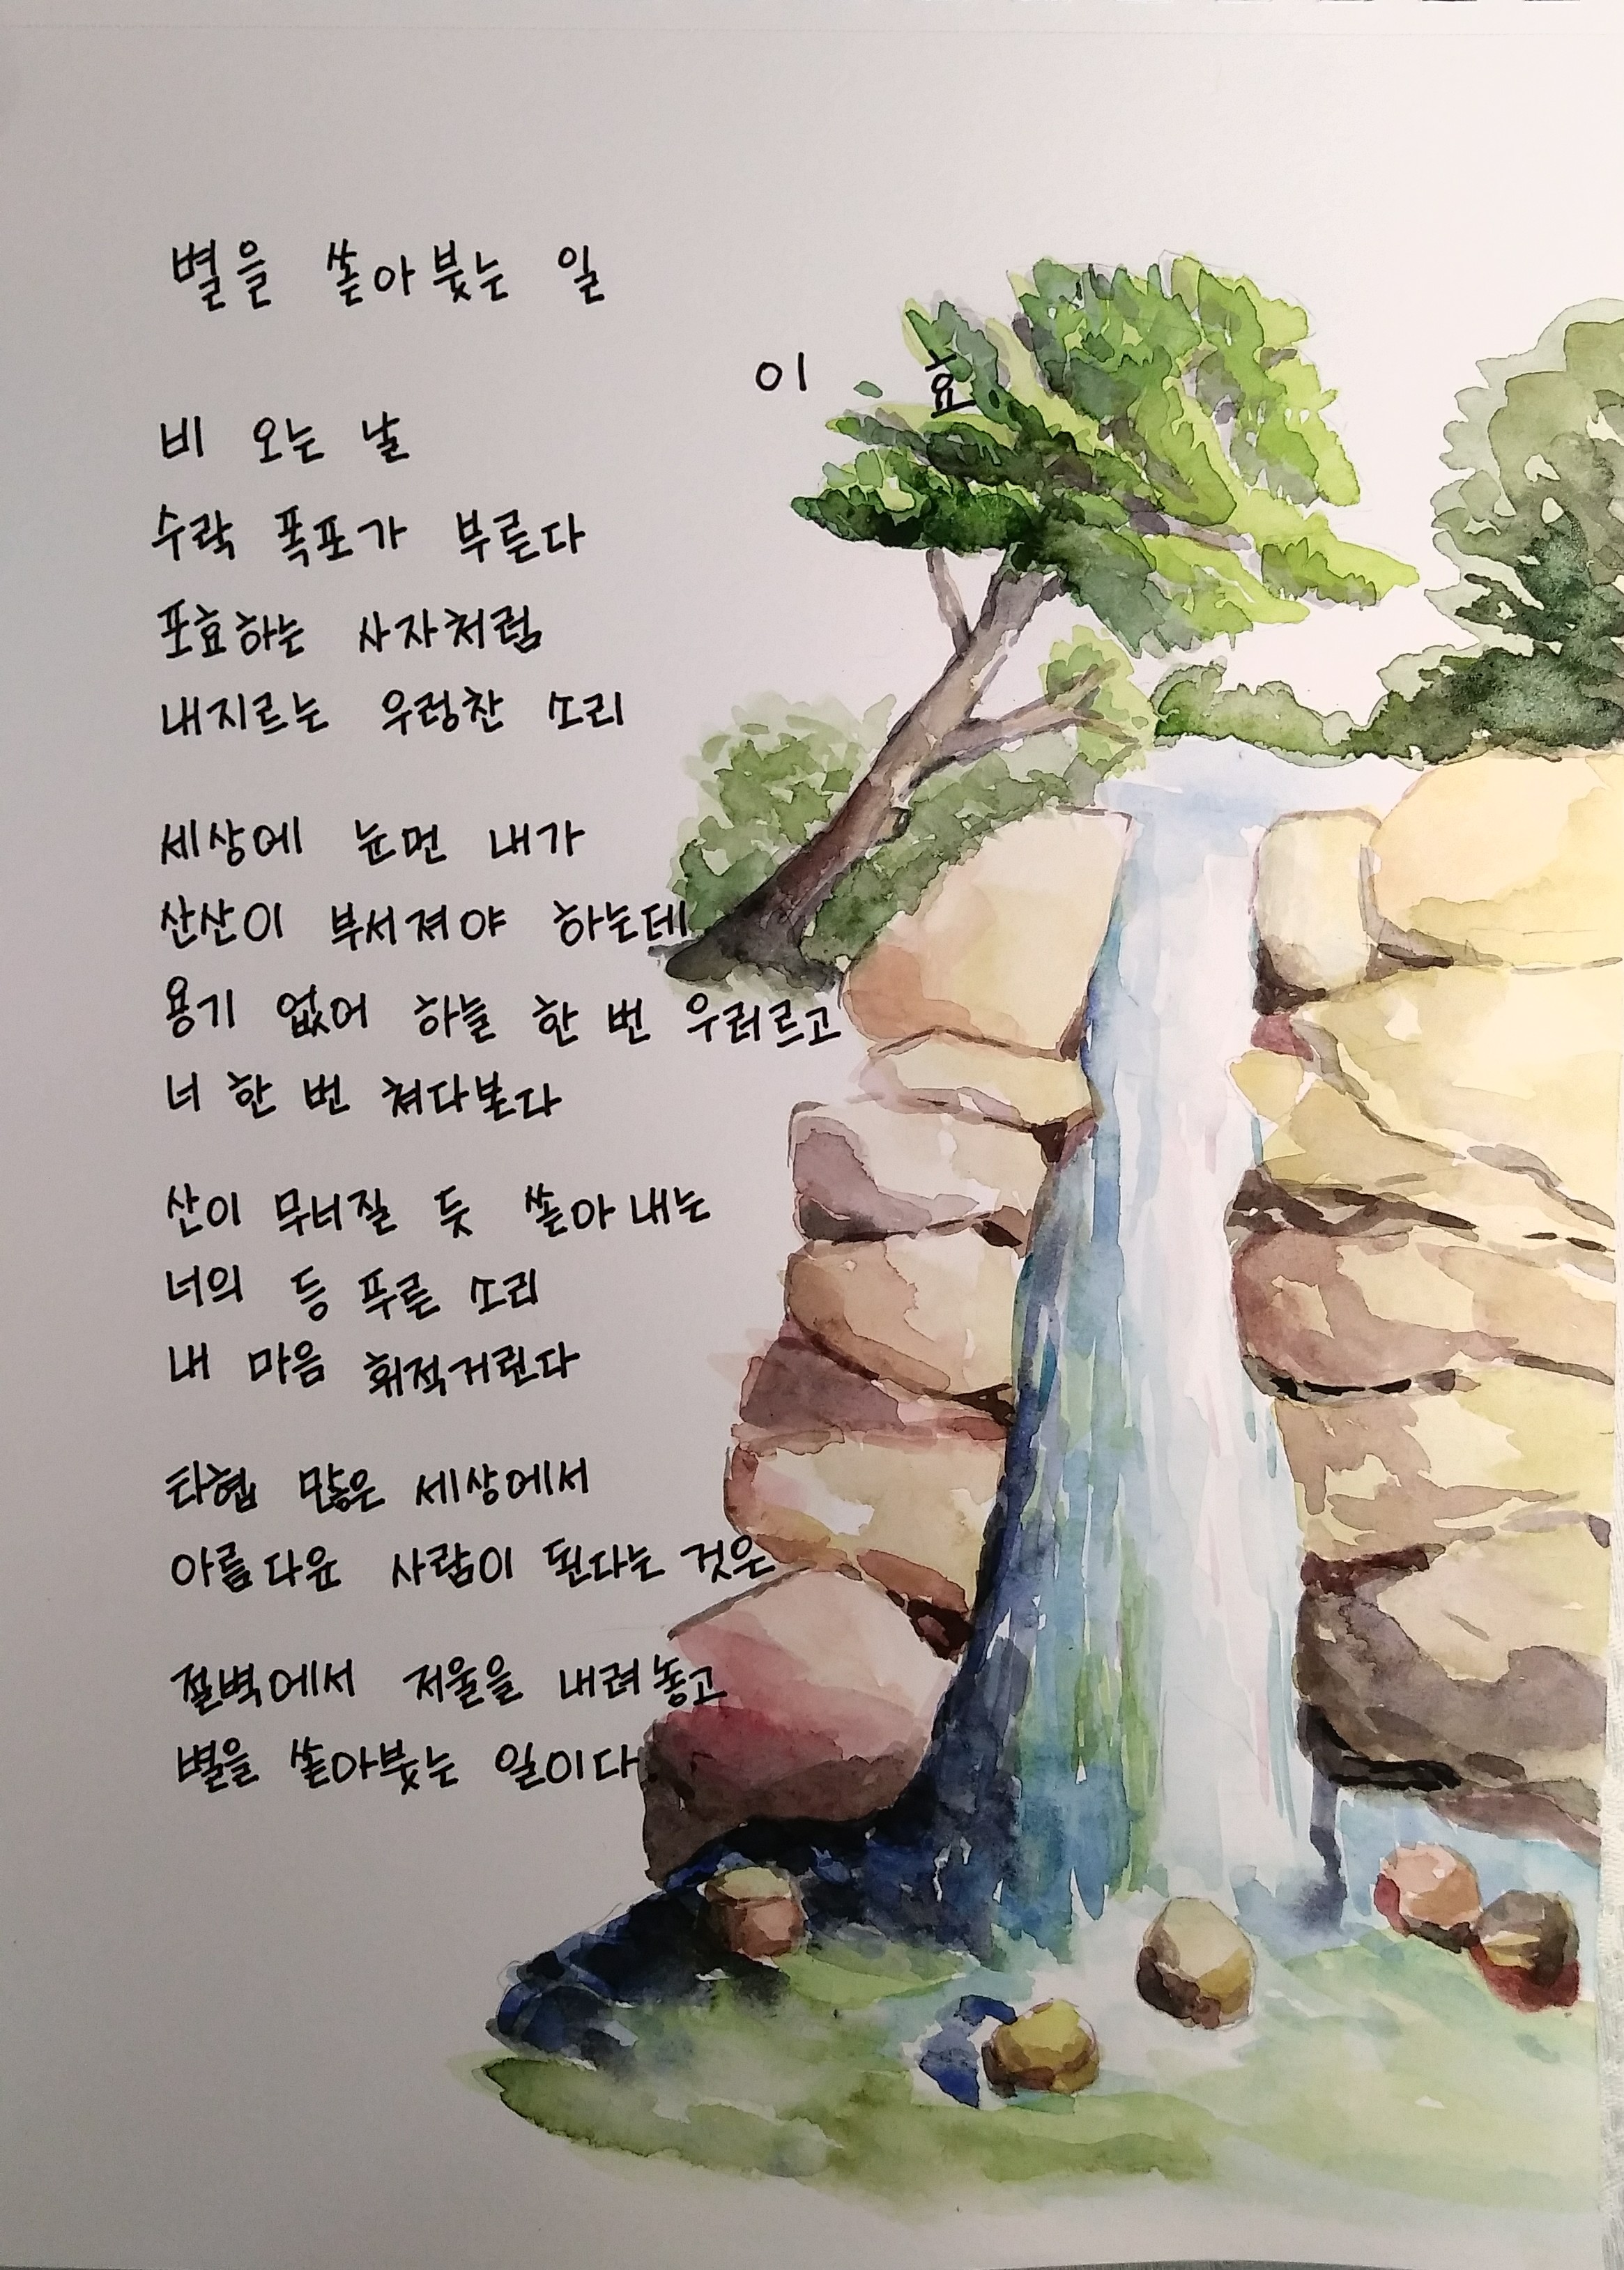 별을 쏟아붓는 일
이 효
비 오는 날
수락 폭포가 부른다
포효하는 사자처럼
내지르는 우렁찬 소리
세상에 눈먼 내가
산산이 부서져야 하는데
용기 없어 하늘 한 번 우러르고
너 한 번 쳐다본다
산이 무너질 듯 쏟아 내는
너의 등 푸른 소리
내 마음 휘적거린다
타협 많은 세상에서
아름다운 사람이 된다는 것은
절벽에서 저울을 내려놓고
별을 쏟아붓는 일이다